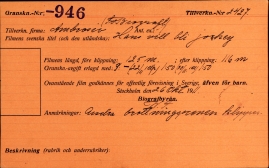 Gransk.-Nr. -946 Tillverkn.-Nr. 2427
Tillverkn. firma: Ambrosio
Filmens svenska titel (och den utländska): Lins vill bli jockey
Filmens längd, före klippning: 125 m.; efter klippning: 116 m
Oranskn.-avgift erlagd med
Ovanstående film godkännes för offentlig förevisning i Sverige, äfven för barn.
Stockholm den 26 Okt. 191
Biografbyrån.
Anmärkningar: Andra brottningsscenen klippes
Beskrivning (rubrik och underrubriker):